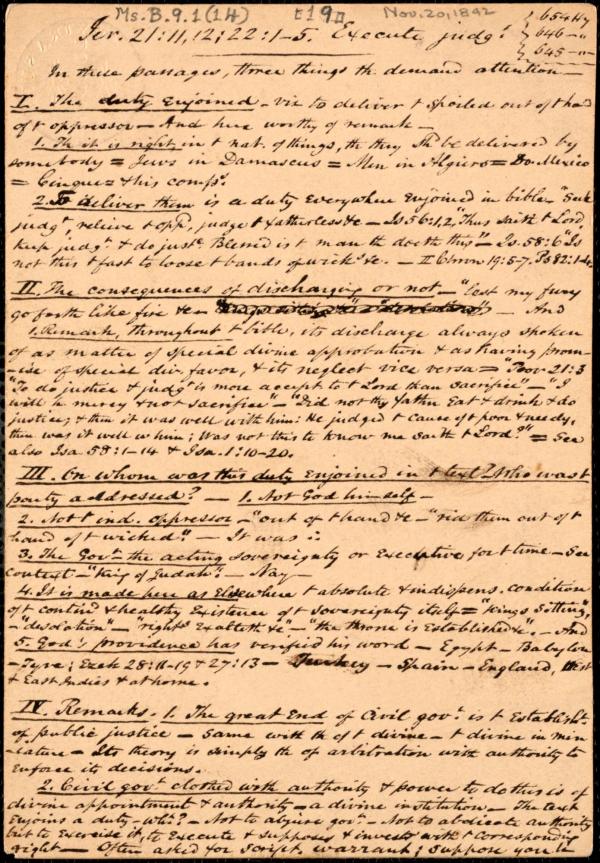 Ms. B. 9. 1 (14) [19] Nov. 20, 1842
Jer. 21:11, 12; 22:1-5. Execute judgt
654
646 - "
645 - "
In these passages, three things th demand attention -
I. The duty enjoined - viz to deliver t spoiled out of t hand
of t oppressor - And here worthy of remark -
1. Th it is right, in t nat. of things, tht they shd be delivered by
somebody = Jews in Damascus = Men in Algiers = Do. Mexico
= Cinque = & his comps.
2. To deliver them is a duty everywhere enjoined in bible - "Seek
judgt, relieve t opp, judge t fatherless &c - Is 56:1,2, "Thus saith t Lord,
keep judgt & do justc. Blessed is t man th doeth this" - Is. 58:6 "Is
not this t fast to loose t bands of wickd &c. - II Chron 19:5-7. Ps 82:1-4.
II. The consequences of discharging or not - "Lest my fury
go forth like fire &c - And
1. Remark, throughout t bible, its discharge always spoken
of as matter of special divine approbation & as having prom-
-ise of special div. favor, & its neglect vice versa = "Prov 21:3
"To do justice & judgt is more accept. to t Lord than sacrifice" - "I
will h mercy & not sacrifice" - "Did not thy father eat & drink & do
justice, & then it was well with him: He judged t cause of t poor & needy,
then was it well w him; Was not this to know me saith t Lord?" = See
also Isa. 58:1-14 & Isa. 1:10-20.
III. On whom was this duty enjoined in t text? Who was t
party addressed? - 1. Not God himself -
2. Not t ind. oppressor - "out of t hand &c - "rid them out of t
hand of t wicked." - It was ∴
3. The Govt. the acting sovereignty or Executive for t time - See
context - "King of Judah". - Nay -
4. It is made here as elsewhere t absolute & indispens. condition
of t contind & healthy existence of t sovereignty itself = "Kings sitting",
- "desolation" - "rights exalteth &c" - "the throne is established &c". - And
5. God's providence has verified his word - Egypt - Babylon
- Tyre; Ezek 28:11-19 & 27:13 - Turkey - Spain - England, West
& East Indies & at home.
IV. Remarks. 1. The great end of Civil govt. is t establisht.
of public justice - same with th of t divine - t divine in min
-iature - Its theory is simply th of arbitration with authority to
enforce its decisions.
2. Civil govt. clothed with authority & power to do this is of
divine appointment & authority - a divine institution - The text
enjoins a duty - wh? - Not to abjure govt - Not to abdicate authority
but to exercise it, to execute & supposes & invests with t corresponding
right - Often asked for script. warrant; suppose you